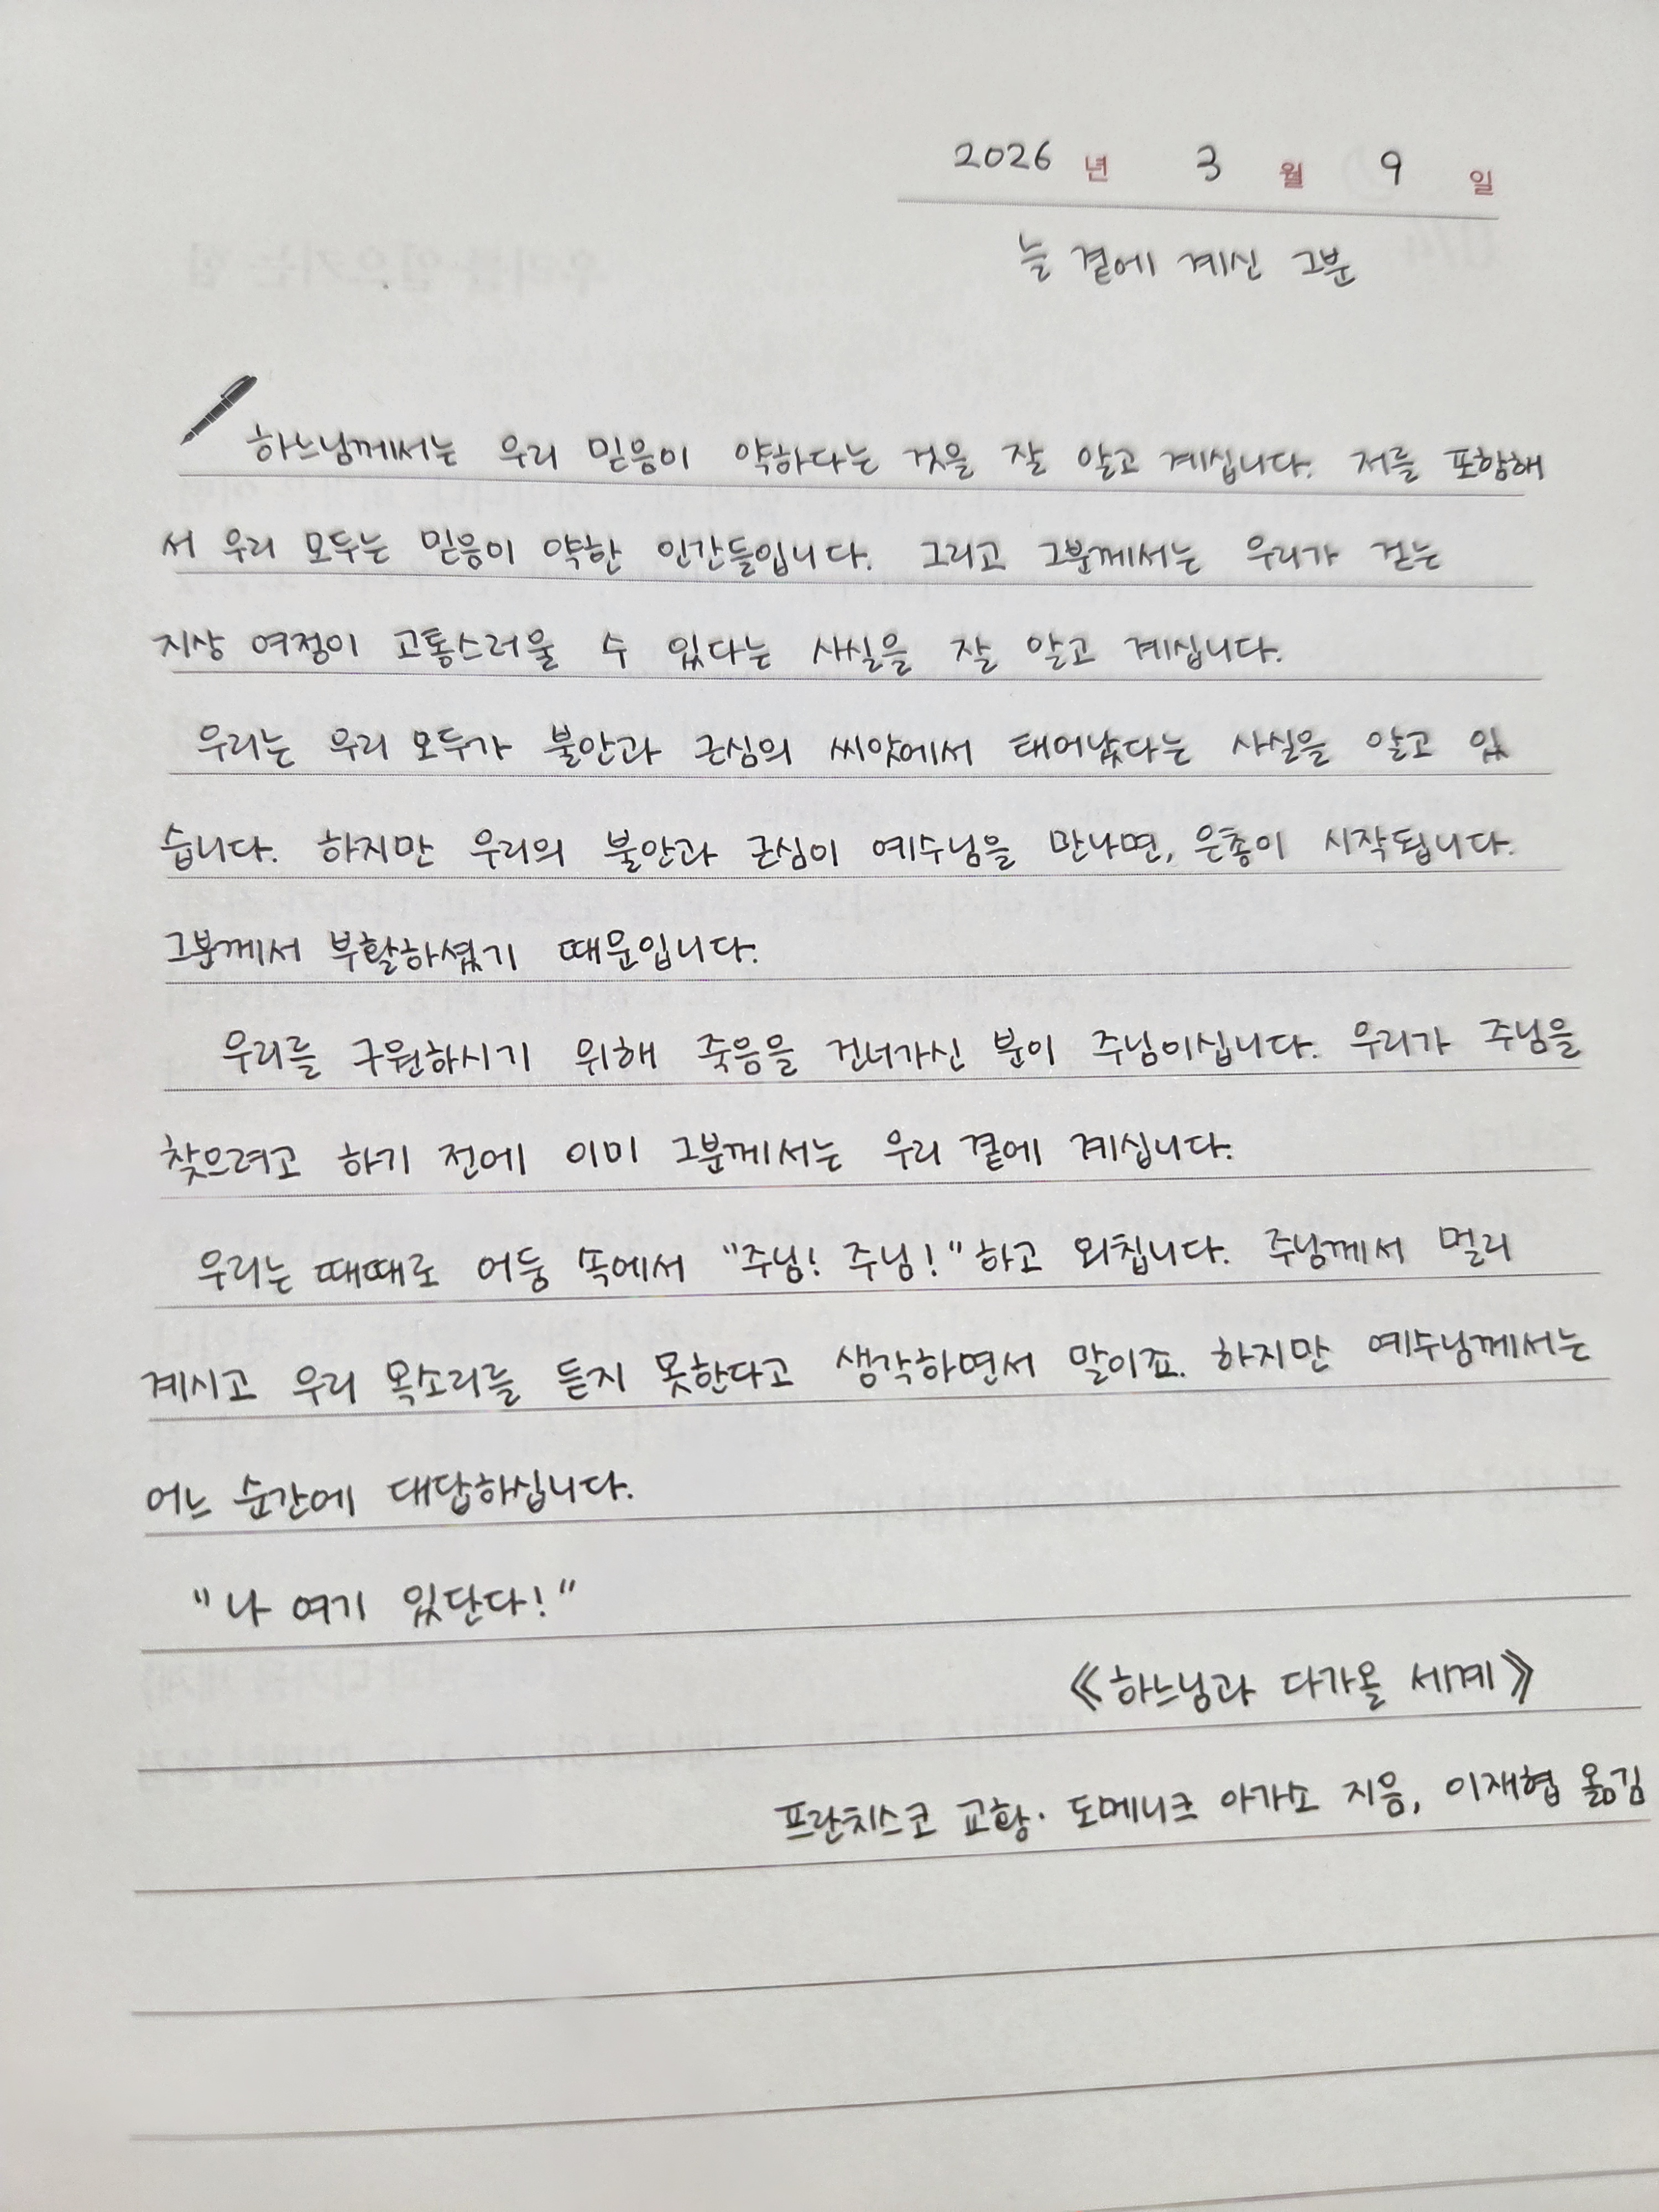 2026 년 3 월 9 일
늘 곁에 계신 그분
하느님께서는 우리 믿음이 약하다는 것을 잘 알고 계십니다. 저를 포함해
서 우리 모두는 믿음이 약한 인간들입니다. 그리고 그분께서는 우리가 걷는
지상 여정이 고통스러울 수 있다는 사실을 잘 알고 계십니다.
우리는 우리 모두가 불안과 근심의 씨앗에서 태어났다는 사실을 알고 있
습니다. 하지만 우리의 불안과 근심이 예수님을 만나면, 은총이 시작됩니다.
그분께서 부활하셨기 때문입니다.
우리를 구원하시기 위해 죽음을 건너가신 분이 주님이십니다. 우리가 주님을
찾으려고 하기 전에 이미 그분께서는 우리 곁에 계십니다.
우리는 때때로 어둠 속에서 "주님! 주님!" 하고 외칩니다. 주님께서 멀리
계시고 우리 목소리를 듣지 못한다고 생각하면서 말이죠. 하지만 예수님께서는
어느 순간에 대답하십니다.
"나 여기 있단다!"
《하느님과 다가올 세계》
프란치스코 교황·도메니크 아가소 지음, 이재협 옮김